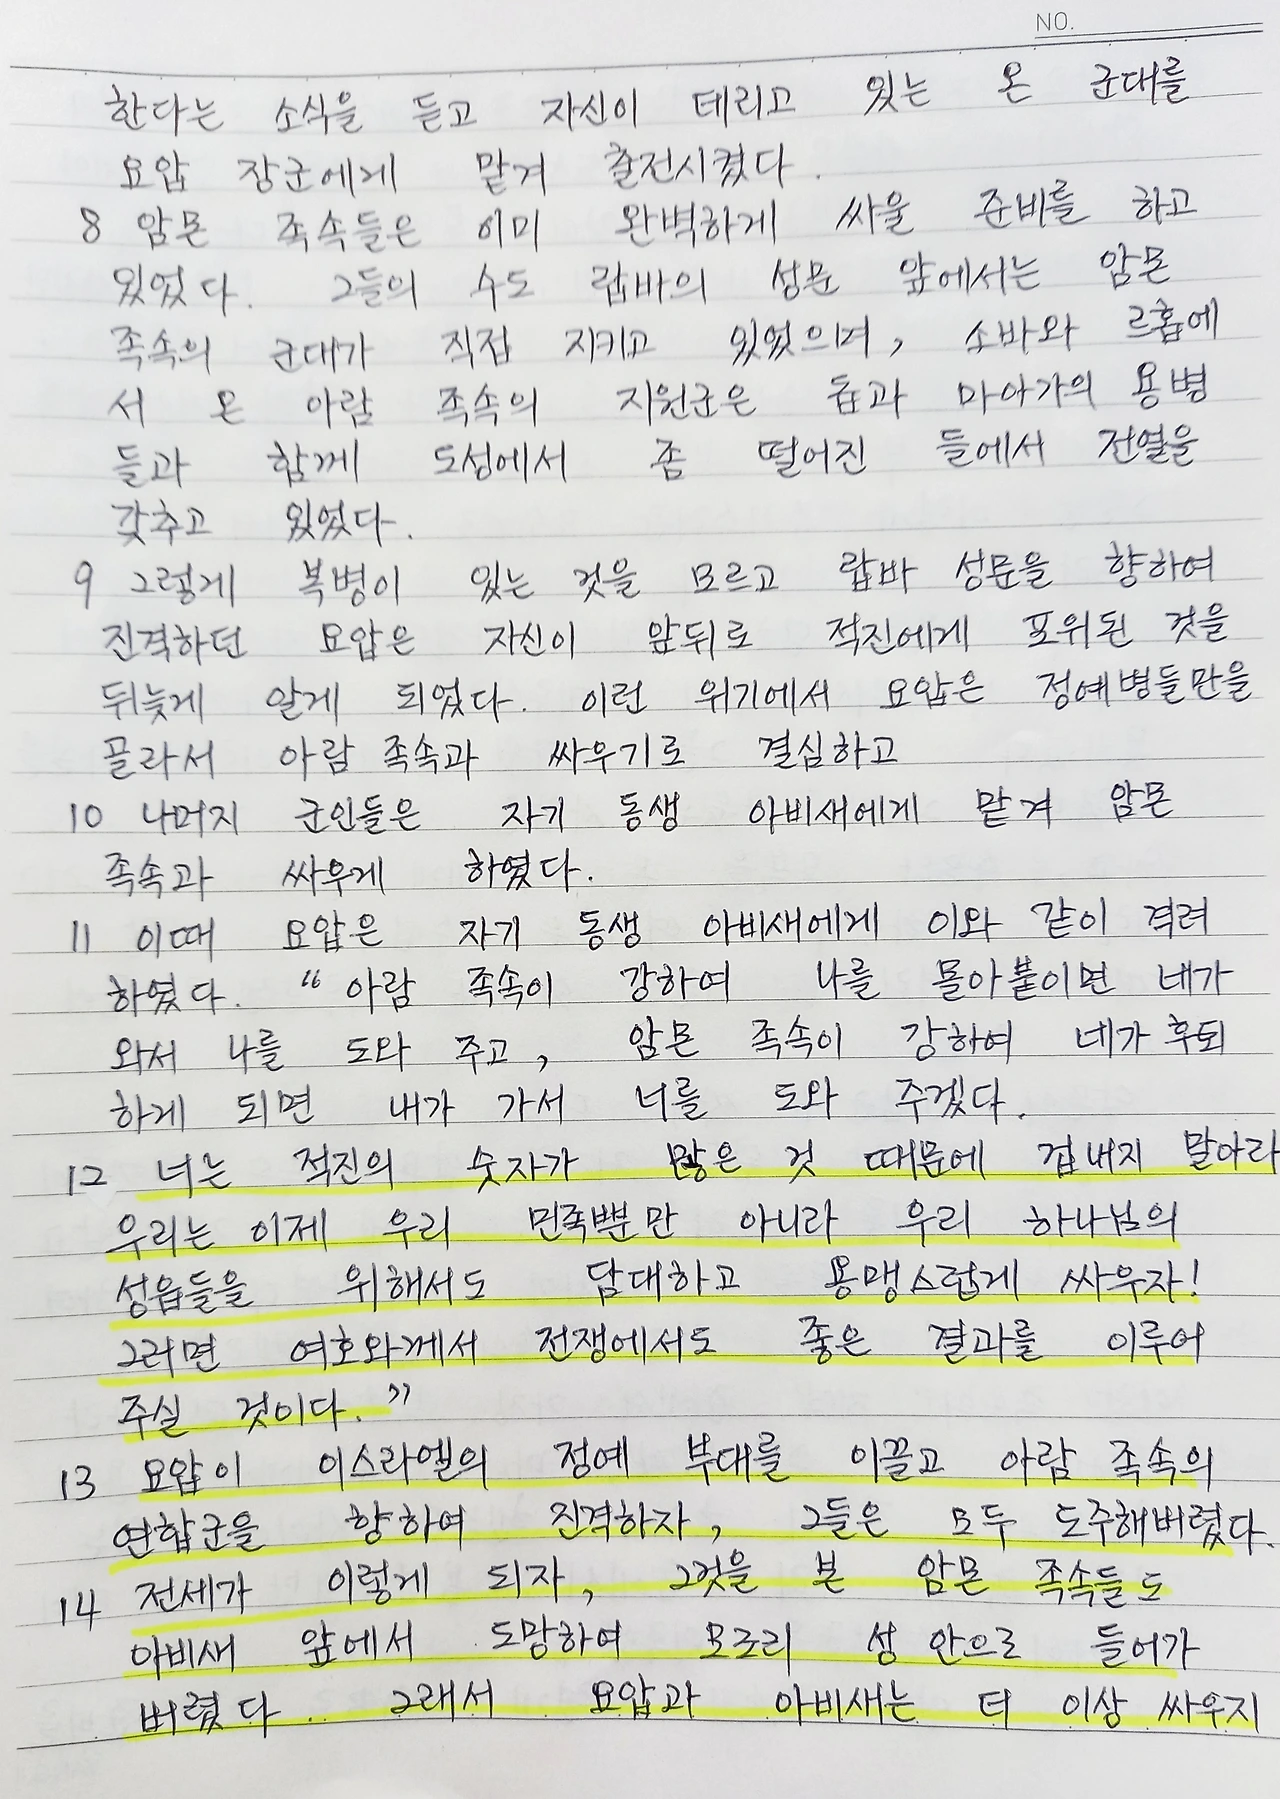 NO.
한다는 소식을 듣고 자신이 데리고 있는 온 군대를
요압 장군에게 맡겨 출전시켰다.
8 암몬 족속들은 이미 완벽하게 싸울 준비를 하고
있었다. 그들의 수도 랍바의 성문 앞에서는 암몬
족속의 군대가 직접 지키고 있었으며, 소바와 르홉에
서 온 아람 족속의 지원군은 돕과 마아가의 용병
들과 함께 도성에서 좀 떨어진 들에서 전열을
갖추고 있었다.
9 그렇게 복병이 있는 것을 모르고 랍바 성문을 향하여
진격하던 요압은 자신이 앞뒤로 적진에게 포위된 것을
뒤늦게 알게 되었다. 이런 위기에서 요압은 정예병들만을
골라서 아람 족속과 싸우기로 결심하고
10 나머지 군인들은 자기 동생 아비새에게 맡겨 암몬
족속과 싸우게 하였다.
11 이때 요압은 자기 동생 아비새에게 이와 같이 격려
하였다. “아람 족속이 강하여 나를 몰아붙이면 네가
와서 나를 도와 주고, 암몬 족속이 강하여 네가 후퇴
하게 되면 내가 가서 너를 도와 주겠다.
12 너는 적진의 숫자가 많은 것 때문에 겁내지 말아라
우리는 이제 우리 민족뿐만 아니라 우리 하나님의
성읍들을 위해서도 담대하고 용맹스럽게 싸우자!
그러면 여호와께서 전쟁에서도 좋은 결과를 이루어
주실 것이다.”
13 요압이 이스라엘의 정예 부대를 이끌고 아람 족속의
연합군을 향하여 진격하자, 그들은 모두 도주해버렸다.
14 전세가 이렇게 되자, 그것을 본 암몬 족속들도
아비새 앞에서 도망하여 모조리 성 안으로 들어가
버렸다. 그래서 요압과 아비새는 더 이상 싸우지